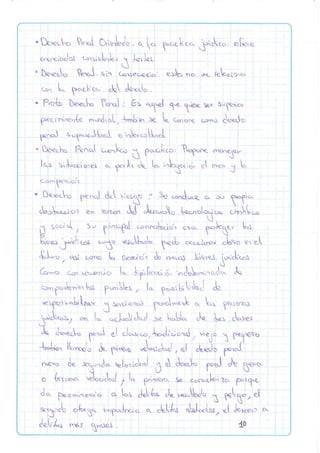 • Derecho Penal Orientado a la practica jurídica: ofrece
enunciados consistentes y fértiles.
• Derecho Penal sin consecuencia: esto no se relaciona
con la practica del derecho.
• Proto Derecho Penal: Es aquel que quiere ser superior
mundial, tmbn se le conoce como derecho
penal supracultural o intercultural.
• Derecho Penal y pacifico: Propone manejar
las situaciones a partir de la integración el amor y la
compasión.
• Derecho penal del riesgo: Se conduce a su propia
destrucción en razón del desarrollo tecnológico científico
y social, su principal era proteger los
bienes jurídicos cuyo resultado puede ocasionar daño en el
futuro, así como la creación de nuevos bienes jurídicos
Como la tipificación indeterminada de
comportamientos punibles, la posibilidad de
responsabilizar y sancionar penalmente a las personas
jurídicas, en la actualidad se habla de tres clases
de derecho penal el clasico, tradicional, viejo y
tambn llamado de primera velocidad, el derecho penal
nuevo de segunda velocidad y el derecho penal de
o tercera velocidad, la primera se caracteriza porque
da preeminencia a los delitos de resultado y peligro, el
segundo otorga importancia a delitos abstractos, el tercero a
delitos más graves.
10